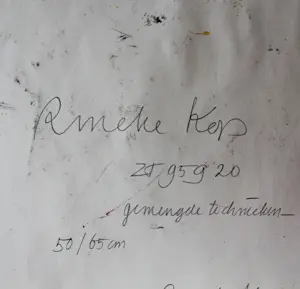 Rineke Kop
ZT 959 20
gemengde technieken
50/65cm